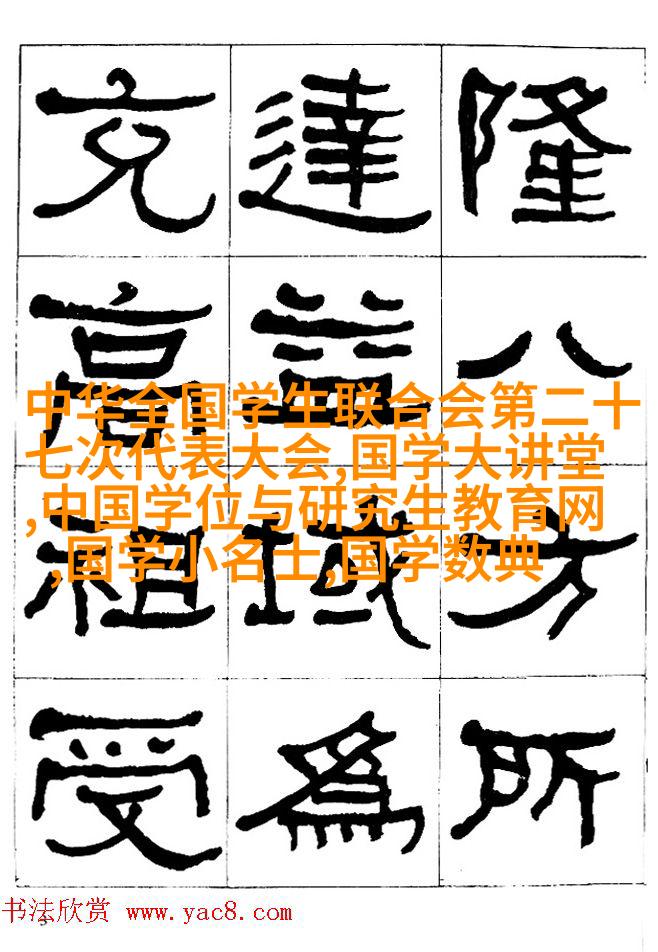 隆八方所
達益域為
充高祖受
中华全国学生联合会第二十
七次代表大会,国学大讲堂
,中国学位与研究生教育网
,国学小名士,国学数典
书法欣赏 www.yac8.com
3